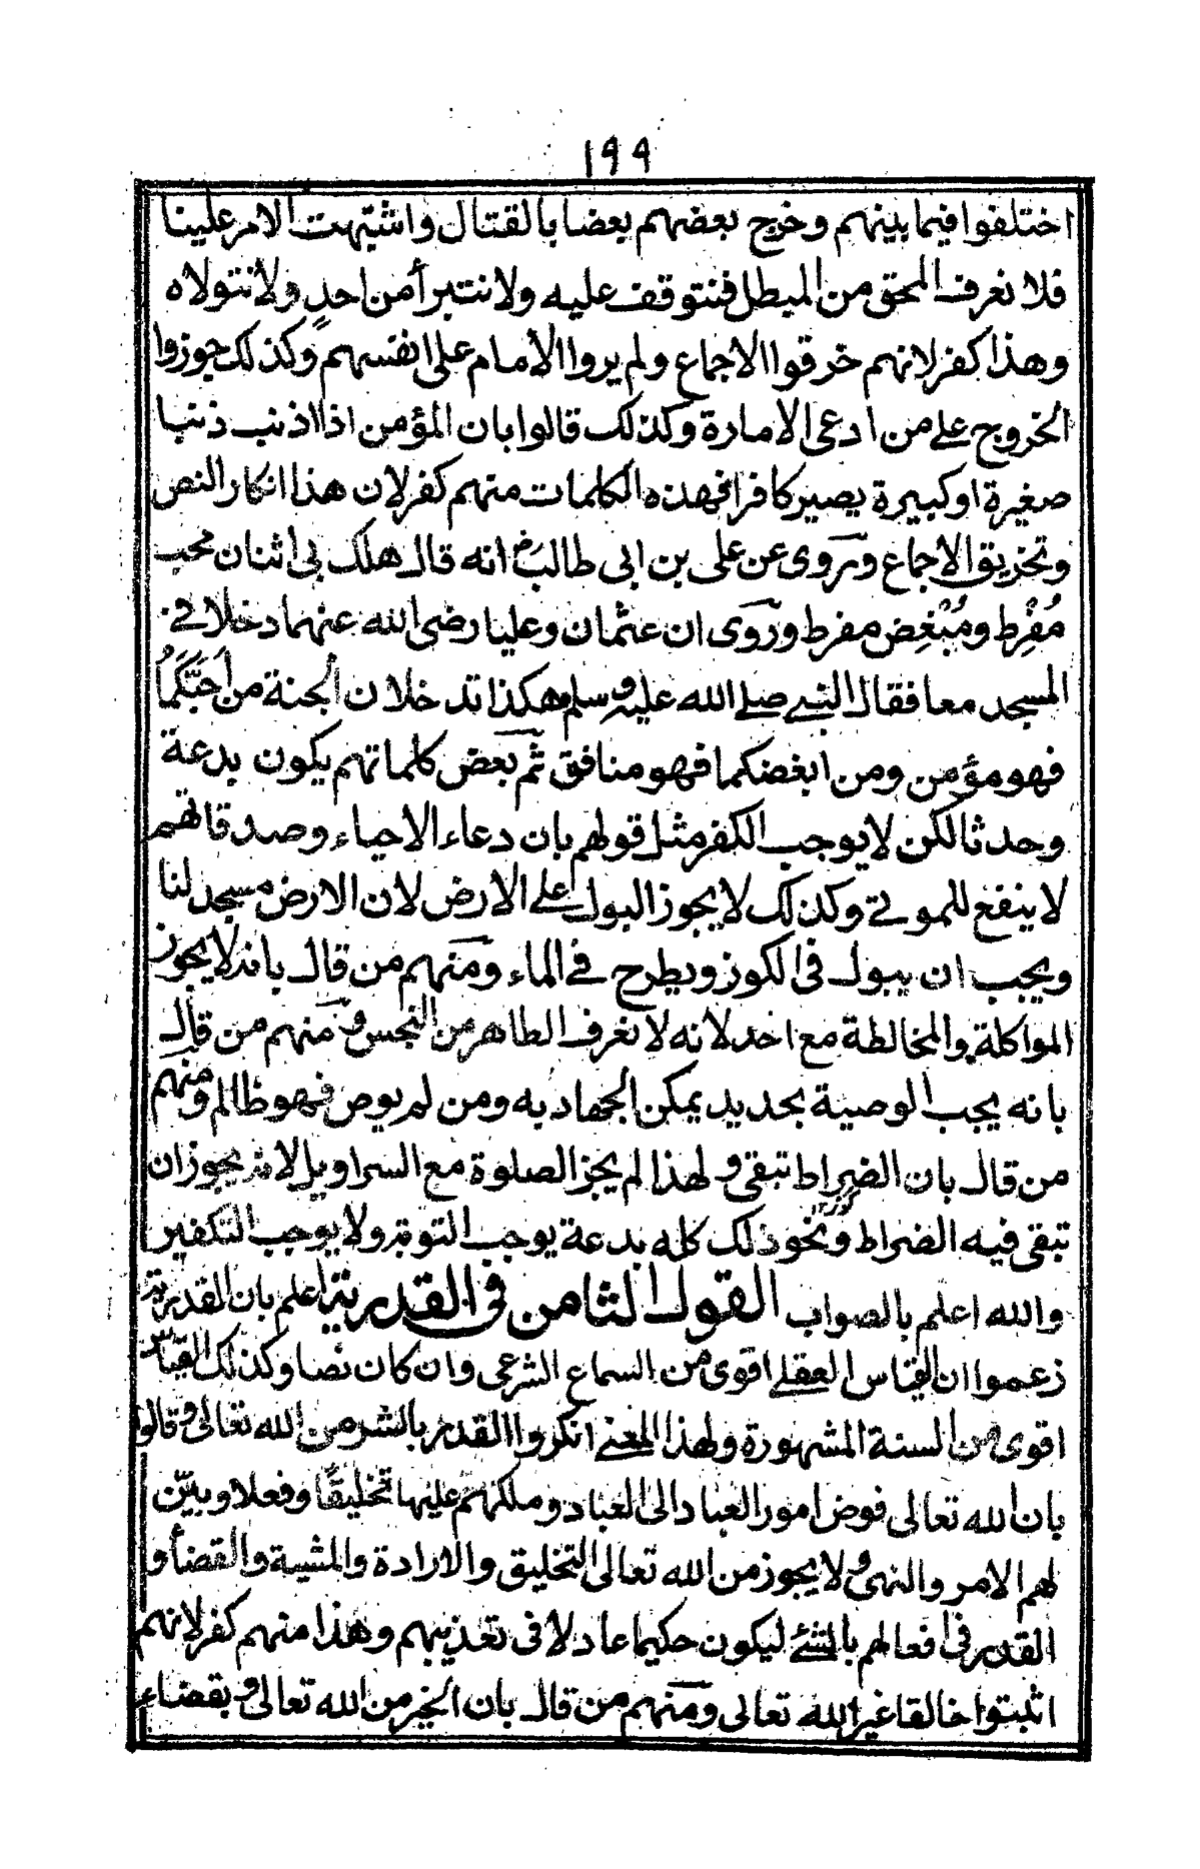 ١٩٩
اختلفوا فيما بينهم وخرج بعضهم بعضا بالقتال واشتبهت الامر علينا
فلا نعرف المحق من المبطل فنتوقف عليه ولا نتبرأ من احدٍ ولا نتولاه
وهذا كفر لانهم خرقوا الاجماع ولم يروا الامام على انفسهم وكذلك جوزوا
الخروج على من ادعى الامارة وكذلك قالوا بان المؤمن اذا اذنب ذنبا
صغيرة او كبيرة يصير كافرا فهذه الكلمات منهم كفر لان هذا انكار النص
وتخريق الاجماع وروى عن على بن ابى طالبؓ انه قال هلك بى اثنان محب
مُفْرِط ومُبْغِض مفرط وروى ان عثمان وعليا رضى الله عنهما دخلا فے
المسجد معا فقال النبے صلے الله عليه وسلم هكذا تدخلان الجنة من اَحَبَّكُمَا
فهو مؤمن ومن ابغضكما فهو منافق ثم بعض كلماتهم يكون بدعة
وحدثا لكن لا يوجب الكفر مثل قولهم بان دعاء الاحياء وصدقاتهم
لا ينفع للموتے وكذلك لا يجوز البول على الارض لان الارض مسجد لنا
ويجب ان يبول فى الكوز ويطرح فے الماء ومنهم من قال بانه لا يجوز
المواكلة والمخالطة مع احد لانه لا نعرف الطاهر من النجس ومنهم من قال
بانه يجب الوصية بحديد يمكن الجهاد به ومن لم يوص فهو ظالم ومنهم
من قال بان الضراط تبقى ولهذا لم يجز الصلوة مع السراويل لانه يجوز ان
تبقى فيه الضراط ونحو ذلك كله بدعة يوجب التوبة ولا يوجب التكفير
والله اعلم بالصواب القول الثامن فى القدرية اعلم بان القدرية
زعموا ان القياس العقلے اقوى من السماع الشرعى وان كان نصا وكذلك القياس
اقوى من السنة المشهورة ولهذا المعنے انكروا القدر بالشر من الله تعالى وقالوا
بان الله تعالى فوض امور العباد الى العباد وملكهم عليها تخليقًا وفعلا وبيّن
لهم الامر والنهى ولا يجوز من الله تعالى التخليق والارادة والمشية والقضأ و
القدر فى افعالهم بالشئے ليكون حكيما عادلا فى تعذيبهم وهذا منهم كفر لانهم
اثبتوا خالقا غير الله تعالى ومنهم من قال بان الخير من الله تعالى وبقضاء